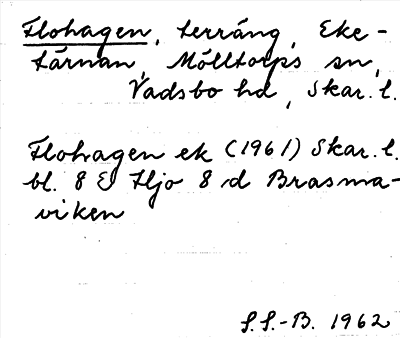 Flohagen, terräng, Eke-
tärnan, Mölltorps sn,
Vadsbo hd, Skar. l.
Flohagen ek (1961) Skar. l.
bl. 8 E Hjo 8 d Brasma-
viken
S.S.-B. 1962